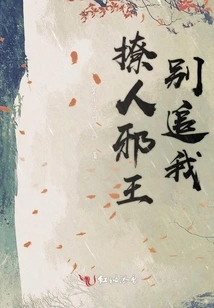 别追我
撩人邪王